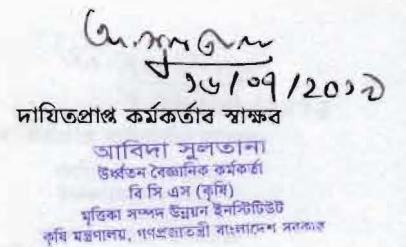 ১৬/০৭/২০১৯
দায়িত্বপ্রাপ্ত কর্মকর্তার স্বাক্ষর
আবিদা সুলতানা
উর্ধ্বতন বৈজ্ঞানিক কর্মকর্তা
বি সি এস (কৃষি)
মৃত্তিকা সম্পদ উন্নয়ন ইনস্টিটিউট
কৃষি মন্ত্রণালয়, গণপ্রজাতন্ত্রী বাংলাদেশ সরকার